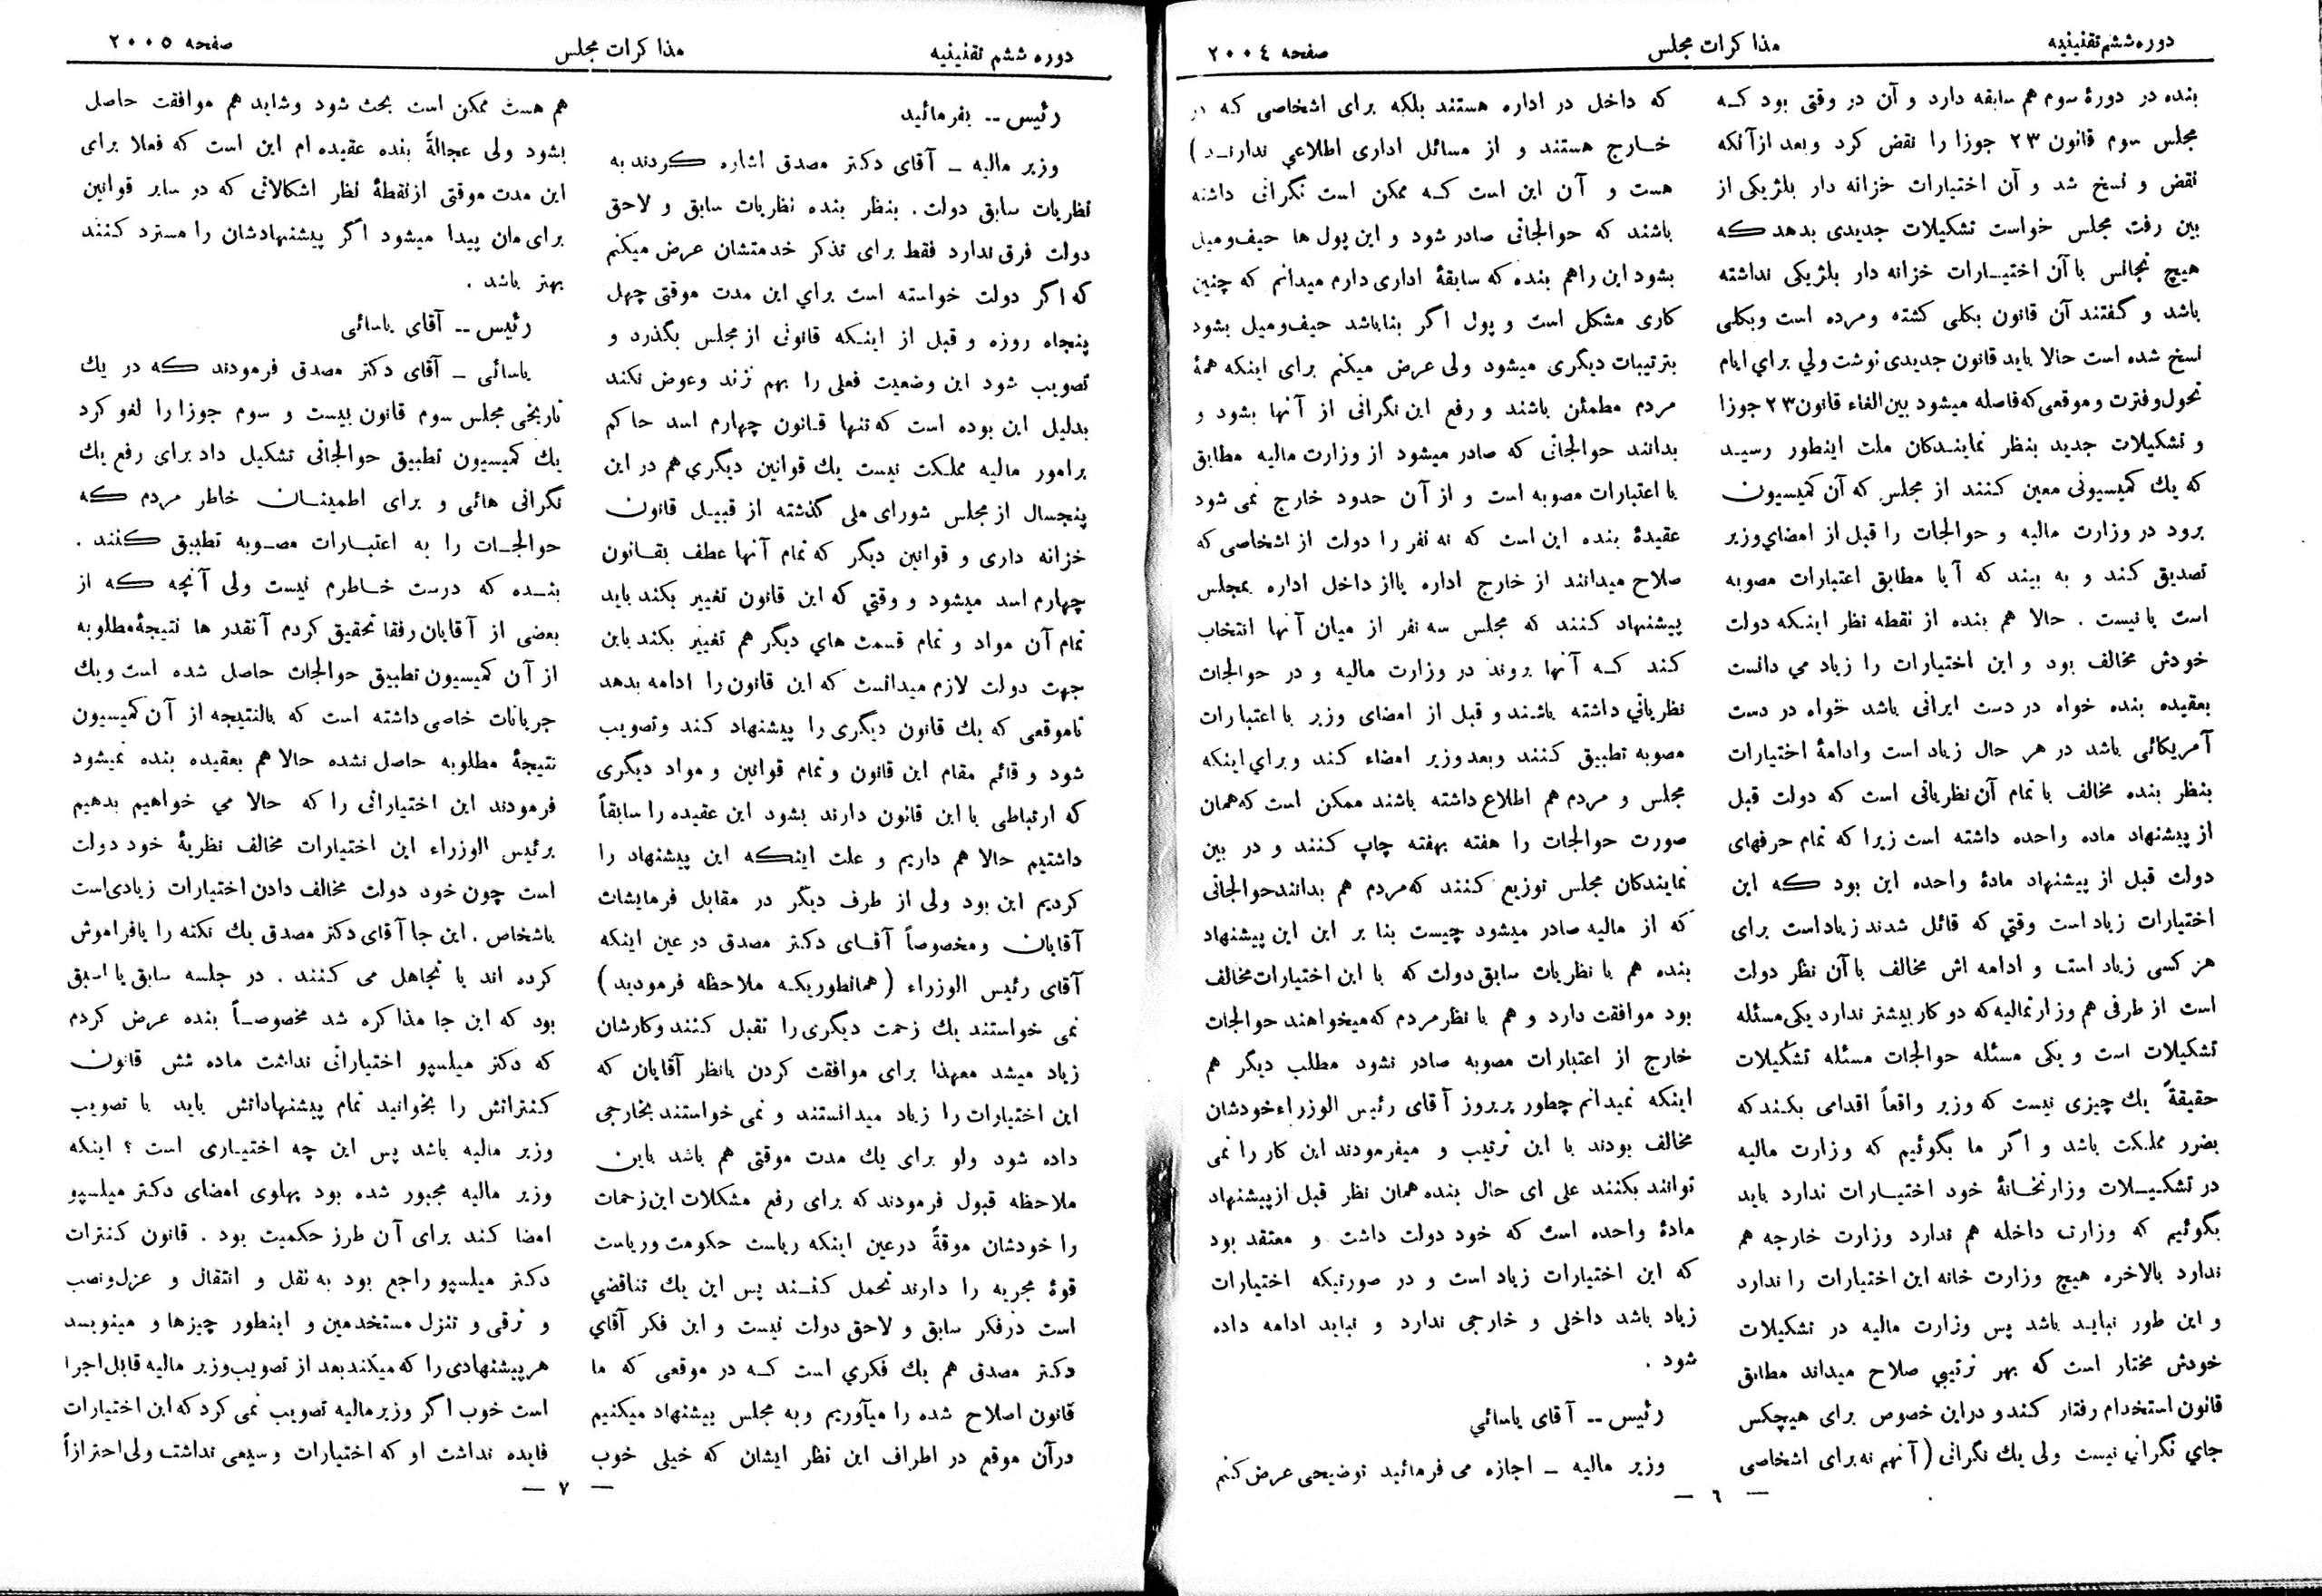 دوره ششم تقنینیه
مذاکرات مجلس
صفحه ۲۰۰٤
بنده در دورهٔ سوم هم سابقه دارد و آن در وقتی بود که
مجلس سوم قانون ۲۳ جوزا را نقض کرد و بعد از آنکه
نقض و نسخ شد و آن اختیارات خزانه دار بلژیکی از
بین رفت مجلس خواست تشکیلات جدیدی بدهد که
هیچ تجانس با آن اختیارات خزانه دار بلژیکی نداشته
باشد و گفتند آن قانون بکلی کشته و مرده است و بکلی
نسخ شده است حالا باید قانون جدیدی نوشت ولي براي ایام
تحول و فترت و موقعی که فاصله میشود بین الغاء قانون ۲۳ جوزا
و تشکیلات جدید بنظر نمایندکان ملت اینطور رسید
که یك کمیسیونی معین کنند از مجلس که آن کمیسیون
برود در وزارت مالیه و حوالجات را قبل از امضاي وزیر
تصدیق کند و به بیند که آیا مطابق اعتبارات مصوبه
است یا نیست . حالا هم بنده از نقطه نظر اینکه دولت
خودش مخالف بود و این اختیارات را زیاد می دانست
بعقیده بنده خواه در دست ایرانی باشد خواه در دست
آمریکائی باشد در هر حال زیاد است و ادامهٔ اختیارات
بنظر بنده مخالف با تمام آن نظریاتی است که دولت قبل
از پیشنهاد ماده واحده داشته است زیرا که تمام حرفهای
دولت قبل از پیشنهاد مادهٔ واحده این بود که این
اختیارات زیاد است وقتي که قائل شدند زیاد است برای
هر کسی زیاد است و ادامه اش مخالف با آن نظر دولت
است از طرفی هم وزارتمالیه که دو کار بیشتر ندارد یکی مسئله
تشکیلات است و یکی مسئله حوالجات مسئله تشکیلات
حقیقةً یك چیزی نیست که وزیر واقعاً اقدامی بکند که
بضرر مملکت باشد و اگر ما بگوئیم که وزارت مالیه
در تشکیلات وزارتخانهٔ خود اختیارات ندارد باید
بگوئیم که وزارت داخله هم ندارد وزارت خارجه هم
ندارد بالاخره هیچ وزارت خانه این اختیارات را ندارد
و این طور نباید باشد پس وزارت مالیه در تشکیلات
خودش مختار است که بهر ترتیبي صلاح میداند مطابق
قانون استخدام رفتار کند و در این خصوص برای هیچکس
جاي نگراني نیست ولی یك نگرانی ( آنهم نه برای اشخاصی
که داخل در اداره هستند بلکه برای اشخاصی که در
خارج هستند و از مسائل اداری اطلاعي ندارند )
هست و آن این است که ممکن است نگرانی داشته
باشند که حوالجاتی صادر شود و این پول ها حیف و میل
بشود این را هم بنده که سابقهٔ اداری دارم میدانم که چنین
کاری مشکل است و پول اگر بنا باشد حیف و میل بشود
بترتیبات دیگری میشود ولی عرض میکنم برای اینکه همهٔ
مردم مطمئن باشند و رفع این نگرانی از آنها بشود و
بدانند حوالجاتی که صادر میشود از وزارت مالیه مطابق
با اعتبارات مصوبه است و از آن حدود خارج نمی شود
عقیدهٔ بنده این است که نه نفر را دولت از اشخاصی که
صلاح میدانند از خارج اداره یا از داخل اداره بمجلس
پیشنهاد کنند که مجلس سه نفر از میان آنها انتخاب
کند که آنها بروند در وزارت مالیه و در حوالجات
نظریاتي داشته باشند و قبل از امضای وزیر با اعتبارات
مصوبه تطبیق کنند و بعد وزیر امضاء کند و براي اینکه
مجلس و مردم هم اطلاع داشته باشند ممکن است که همان
صورت حوالجات را هفته بهفته چاپ کنند و در بین
نمایندکان مجلس توزیع کنند که مردم هم بدانند حوالجاتی
که از مالیه صادر میشود چیست بنا بر این این پیشنهاد
بنده هم با نظریات سابق دولت که با این اختیارات مخالف
بود موافقت دارد و هم با نظر مردم که میخواهند حوالجات
خارج از اعتبارات مصوبه صادر نشود مطلب دیگر هم
اینکه نمیدانم چطور پریروز آقای رئیس الوزراء خودشان
مخالف بودند با این ترتیب و میفرمودند این کار را نمی
توانند بکنند علی ای حال بنده همان نظر قبل از پیشنهاد
مادهٔ واحده است که خود دولت داشت و معتقد بود
که این اختیارات زیاد است و در صورتیکه اختیارات
زیاد باشد داخلی و خارجی ندارد و نباید ادامه داده
شود .
رئیس -- آقای یاسائي
وزیر مالیه - اجازه می فرمائید توضیحی عرض کنم
— ٦ —
دوره ششم تقنینیه
مذاکرات مجلس
صفحه ۲۰۰۵
رئیس -- بفرمائید
وزیر مالیه - آقای دکتر مصدق اشاره کردند به
نظریات سابق دولت . بنظر بنده نظریات سابق و لاحق
دولت فرق ندارد فقط برای تذکر خدمتشان عرض میکنم
که اگر دولت خواسته است براي این مدت موقتی چهل
پنجاه روزه و قبل از اینکه قانونی از مجلس بگذرد و
تصویب شود این وضعیت فعلی را بهم نزند و عوض نکند
بدلیل این بوده است که تنها قانون چهارم اسد حاکم
برامور مالیه مملکت نیست یك قوانین دیگری هم در این
پنجسال از مجلس شورای ملی گذشته از قبیل قانون
خزانه داری و قوانین دیگر که تمام آنها عطف بقانون
چهارم اسد میشود و وقتي که این قانون تغییر بکند باید
تمام آن مواد و تمام قسمت هاي دیگر هم تغییر بکند باین
جهت دولت لازم میدانست که این قانون را ادامه بدهد
تا موقعی که یك قانون دیگری را پیشنهاد کند و تصویب
شود و قائم مقام این قانون و تمام قوانین و مواد دیگری
که ارتباطی با این قانون دارند بشود این عقیده را سابقاً
داشتیم حالا هم داریم و علت اینکه این پیشنهاد را
کردیم این بود ولی از طرف دیگر در مقابل فرمایشات
آقایان و مخصوصاً آقای دکتر مصدق در عین اینکه
آقای رئیس الوزراء ( همانطوریکه ملاحظه فرمودید )
نمی خواستند یك زحمت دیگری را تقبل کنند و کارشان
زیاد میشد معهذا برای موافقت کردن با نظر آقایان که
این اختیارات را زیاد میدانستند و نمی خواستند بخارجی
داده شود ولو برای یك مدت موقتی هم باشد باین
ملاحظه قبول فرمودند که برای رفع مشکلات این زحمات
را خودشان موقةً در عین اینکه ریاست حکومت و ریاست
قوهٔ مجریه را دارند تحمل کنند پس این یك تناقضي
است در فکر سابق و لاحق دولت نیست و این فکر آقاي
دکتر مصدق هم یك فکري است که در موقعی که ما
قانون اصلاح شده را میآوریم و به مجلس پیشنهاد میکنیم
در آن موقع در اطراف این نظر ایشان که خیلی خوب
هم هست ممکن است بحث شود و شاید هم موافقت حاصل
بشود ولی عجالةً بنده عقیده ام این است که فعلا برای
این مدت موقتی از نقطهٔ نظر اشکالاتی که در سایر قوانین
برای مان پیدا میشود اگر پیشنهادشان را مسترد کنند
بهتر باشد .
رئیس -- آقای یاسائی
یاسائی - آقای دکتر مصدق فرمودند که در یك
تاریخی مجلس سوم قانون بیست و سوم جوزا را لغو کرد
یك کمیسیون تطبیق حوالجاتی تشکیل داد برای رفع یك
نگرانی هائی و برای اطمینان خاطر مردم که
حوالجات را به اعتبارات مصوبه تطبیق کنند .
بنده که درست خاطرم نیست ولی آنچه که از
بعضی از آقایان رفقا تحقیق کردم آنقدر ها نتیجهٔ مطلوبه
از آن کمیسیون تطبیق حوالجات حاصل شده است و یك
جریانات خاصی داشته است که بالنتیجه از آن کمیسیون
نتیجهٔ مطلوبه حاصل نشده حالا هم بعقیده بنده نمیشود
فرمودند این اختیاراتی را که حالا می خواهیم بدهیم
برئیس الوزراء این اختیارات مخالف نظریهٔ خود دولت
است چون خود دولت مخالف دادن اختیارات زیادی است
باشخاص . این جا آقای دکتر مصدق یك نکته را یا فراموش
کرده اند یا تجاهل می کنند . در جلسه سابق یا اسبق
بود که این جا مذاکره شد مخصوصاً بنده عرض کردم
که دکتر میلسپو اختیاراتی نداشت ماده شش قانون
کنتراتش را بخوانید تمام پیشنهاداتش باید با تصویب
وزیر مالیه باشد پس این چه اختیاری است ؟ اینکه
وزیر مالیه مجبور شده بود پهلوی امضای دکتر میلسپو
امضا کند برای آن طرز حکمیت بود . قانون کنترات
دکتر میلسپو راجع بود به نقل و انتقال و عزل و نصب
و ترقی و تنزل مستخدمین و اینطور چیزها و مینویسد
هر پیشنهادی را که میکند بعد از تصویب وزیر مالیه قابل اجرا
است خوب اگر وزیر مالیه تصویب نمی کرد که این اختیارات
فایده نداشت او که اختیارات وسیعی نداشت ولی احترازاً
— ۷ —